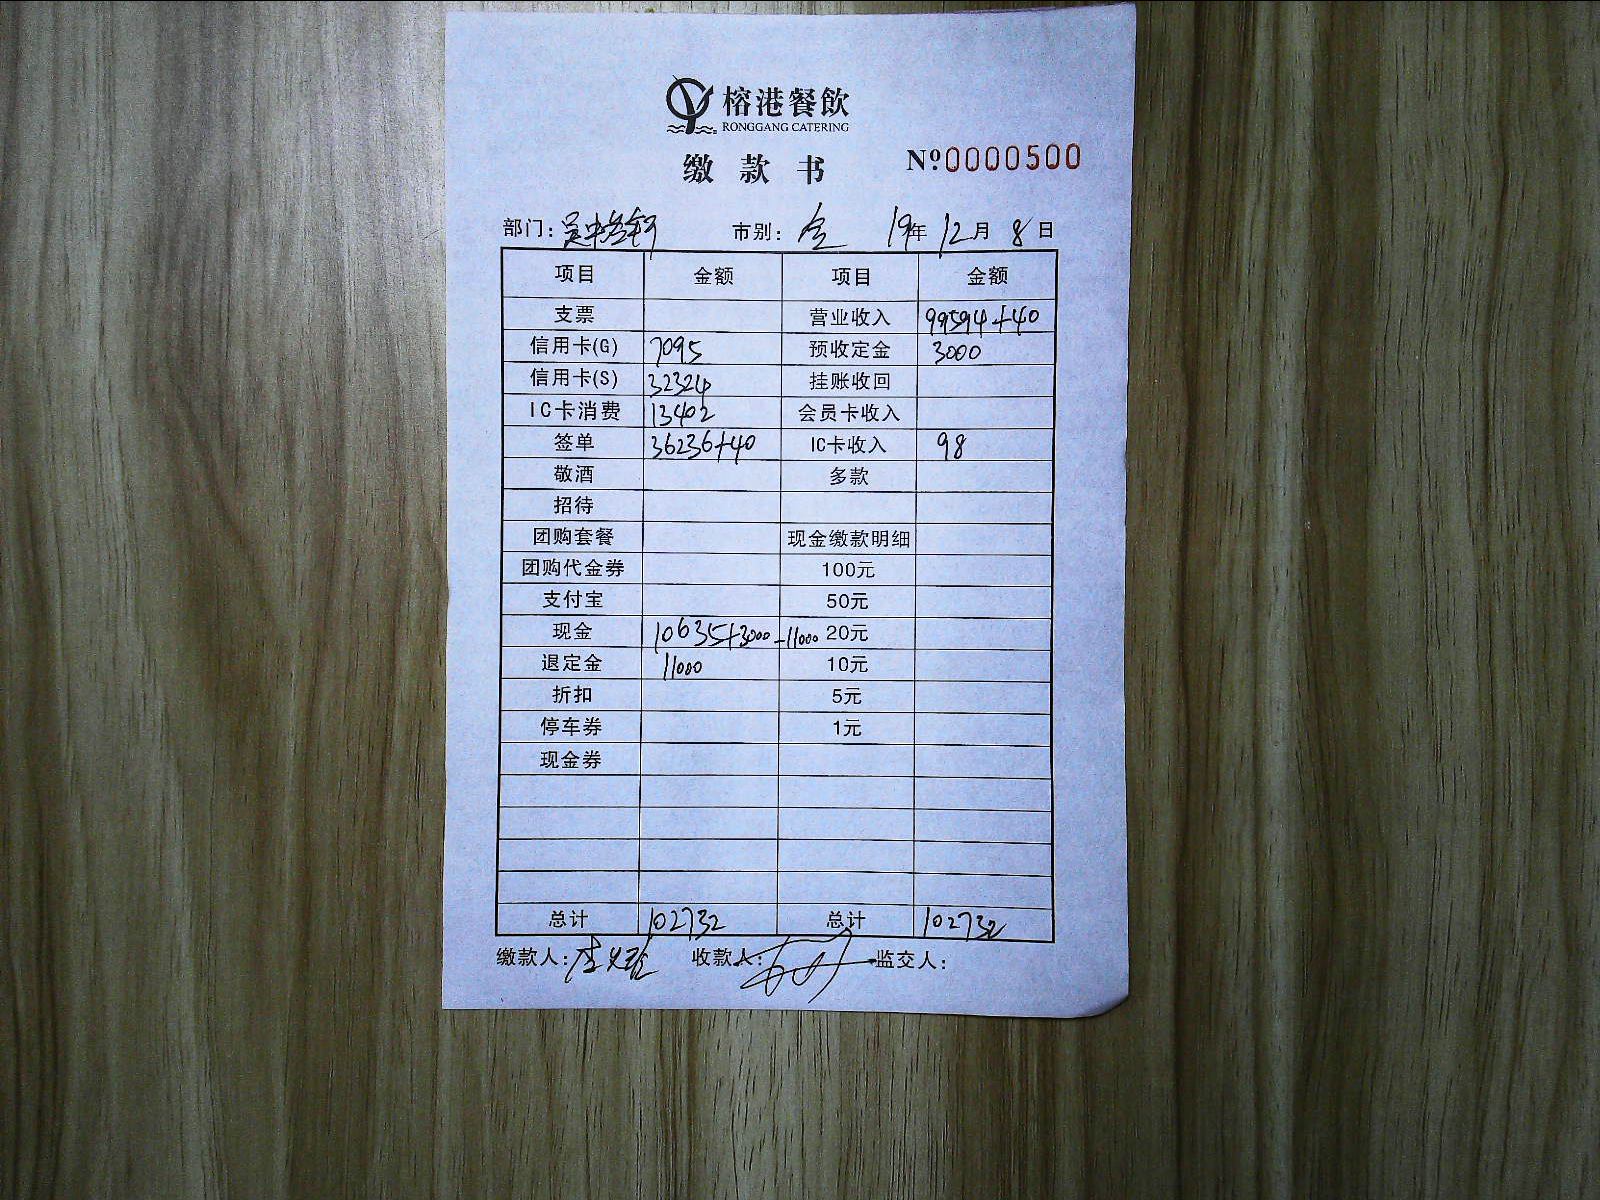 榕港餐飲
RONGGANG CATERING
缴款书 Nº0000500
部门: 吴中 市别: 全 19年12月8日
项目 金额 项目 金额
支票 营业收入 99594+40
信用卡(G) 7095 预收定金 3000
信用卡(S) 32324 挂账收回
IC卡消费 13402 会员卡收入
签单 36236+40 IC卡收入 98
敬酒 多款
招待
团购套餐 现金缴款明细
团购代金券 100元
支付宝 50元
现金 10635+3000-11000 20元
退定金 11000 10元
折扣 5元
停车券 1元
现金券
总计 102732 总计 102732
缴款人: 收款人: 监交人: